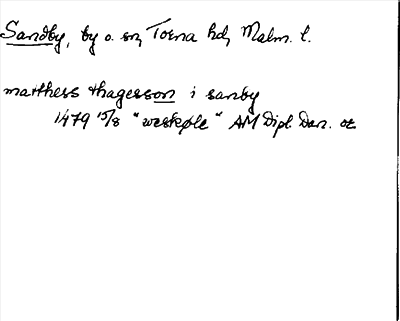 Sandby, by o. sn, Torna hd, Malm. l.
matthess thagesson i sanby
1479 15/8 "weskøle" AM Dipl. Dan. or